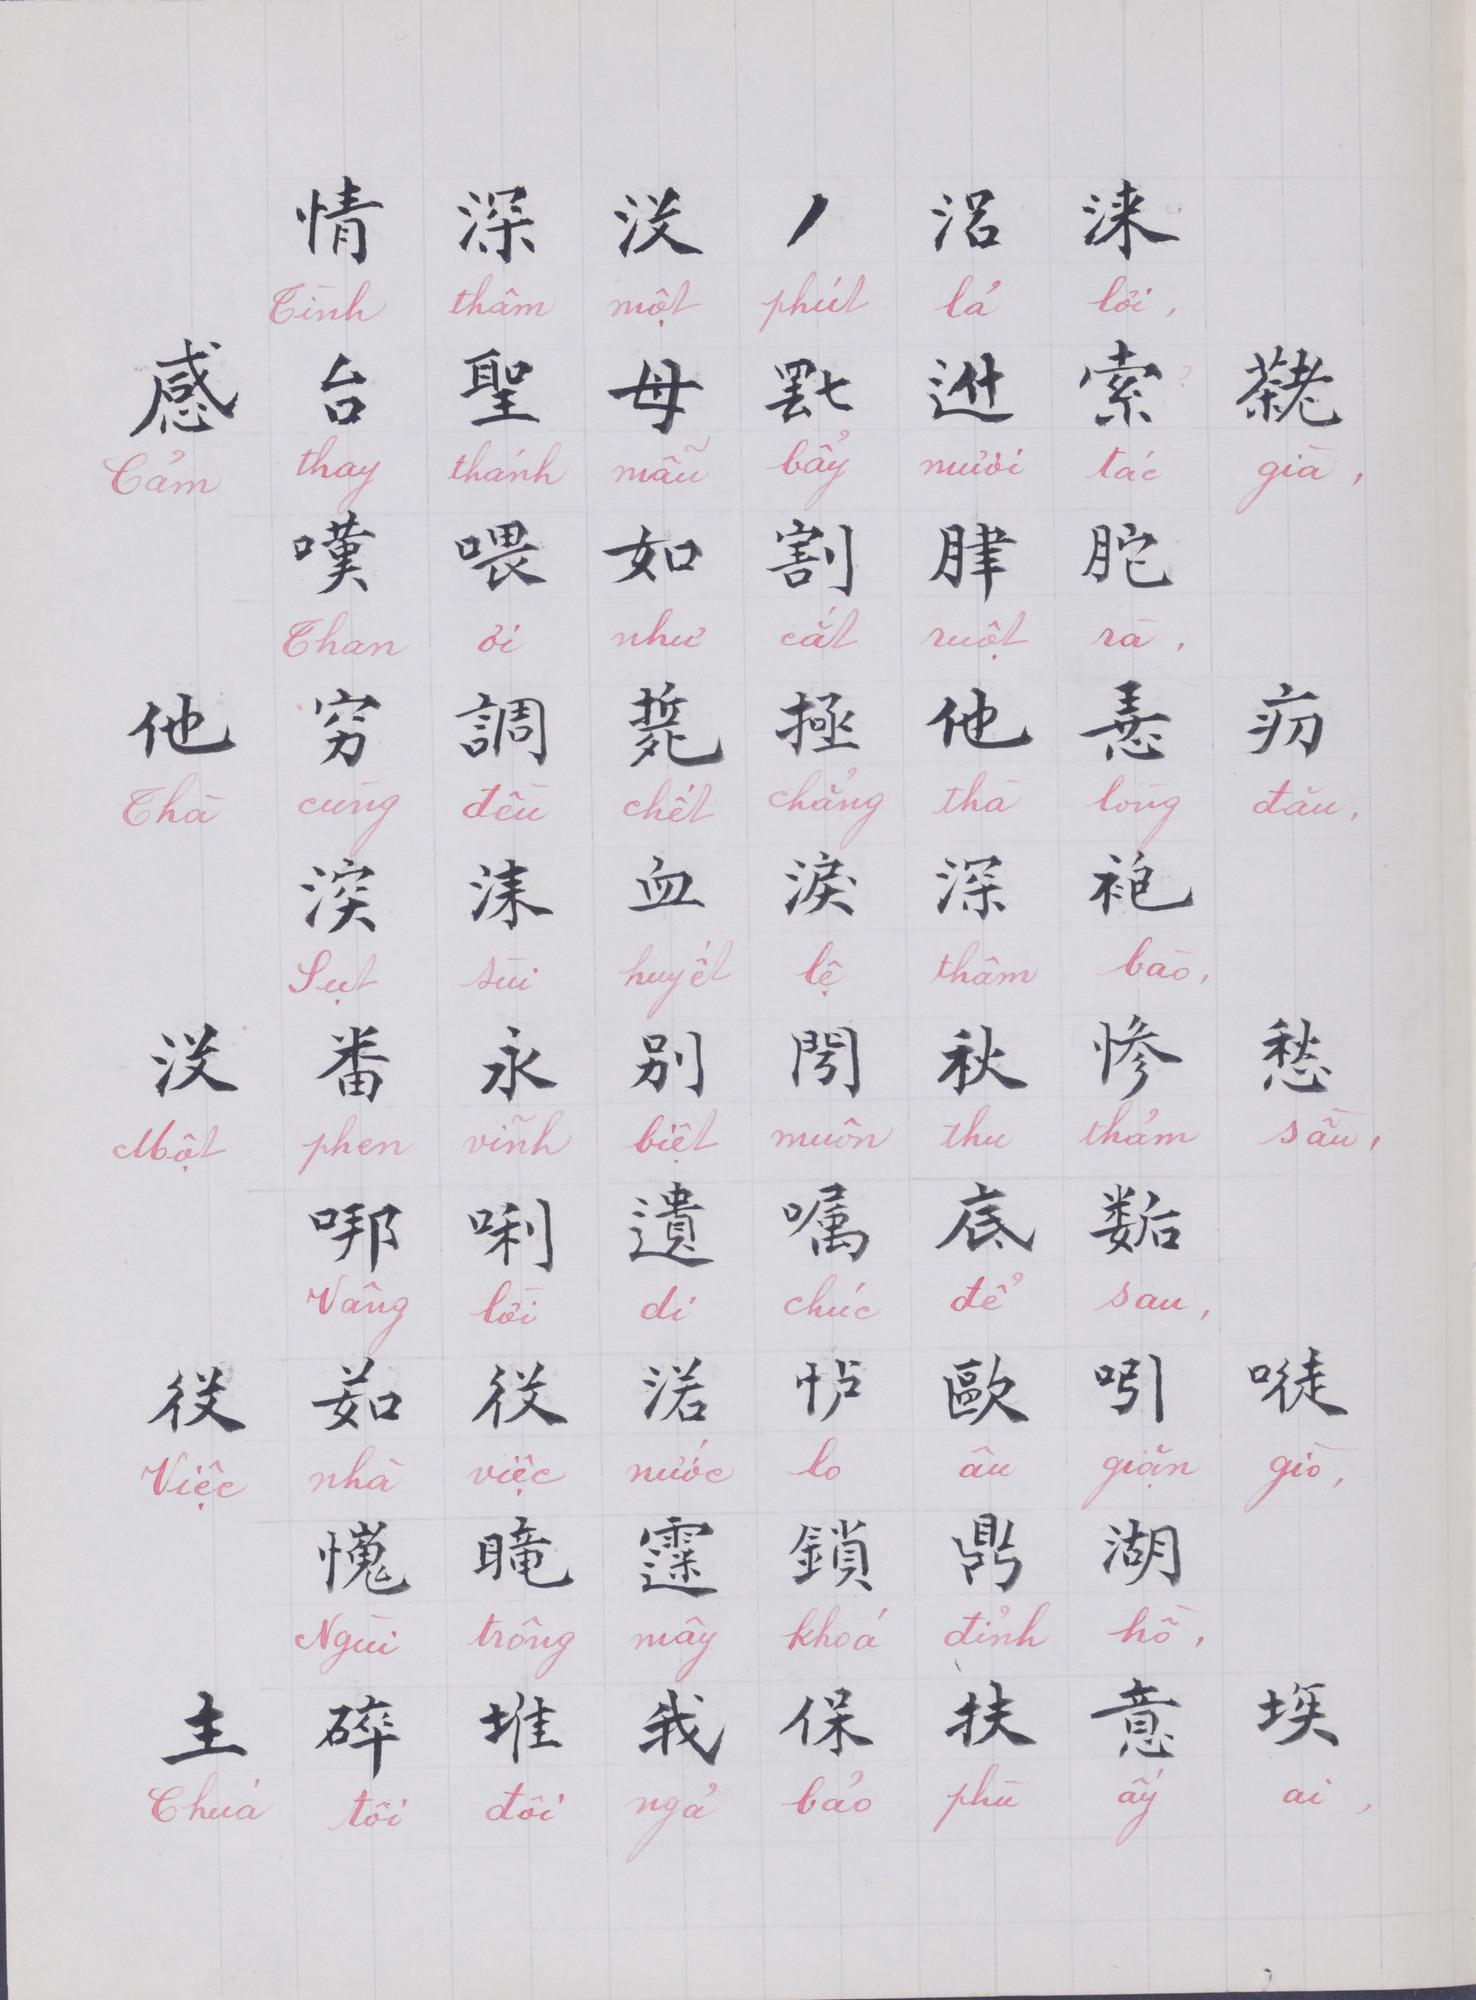 情 深 沒 丿 沼 淶
Tình thâm một phút lả lơi,
感 台 聖 母 𦉱 𨑮 索 𦓅
Cảm thay thánh mẫu bẩy mươi tác già,
嘆 喂 如 割 𦛌 𦓡
Than ôi như cắt ruột rà,
他 穷 調 𣩂 極 他 𢚸 疠
Thà cùng đều chết chẳng thà lòng đău,
湥 洡 血 淚 深 袍
Sụt sùi huyết lệ thâm bào,
沒 番 永 别 閍 秋 慘 愁
Một phen vĩnh biệt muôn thu thảm sầu,
哪 唎 遺 嘱 底 𢖖
Vâng lời di chúc để sau,
役 茹 役 渃 𢗼 歐 吲 𠹾
Việc nhà việc nước lo âu giặn giò,
𢠐 𥊣 𩄲 鎖 鼎 湖
Ngùi trông mây khoá đỉnh hồ,
主 碎 堆 我 保 扶 意 埃
Chuá tôi đôi ngả bảo phù ấy ai,